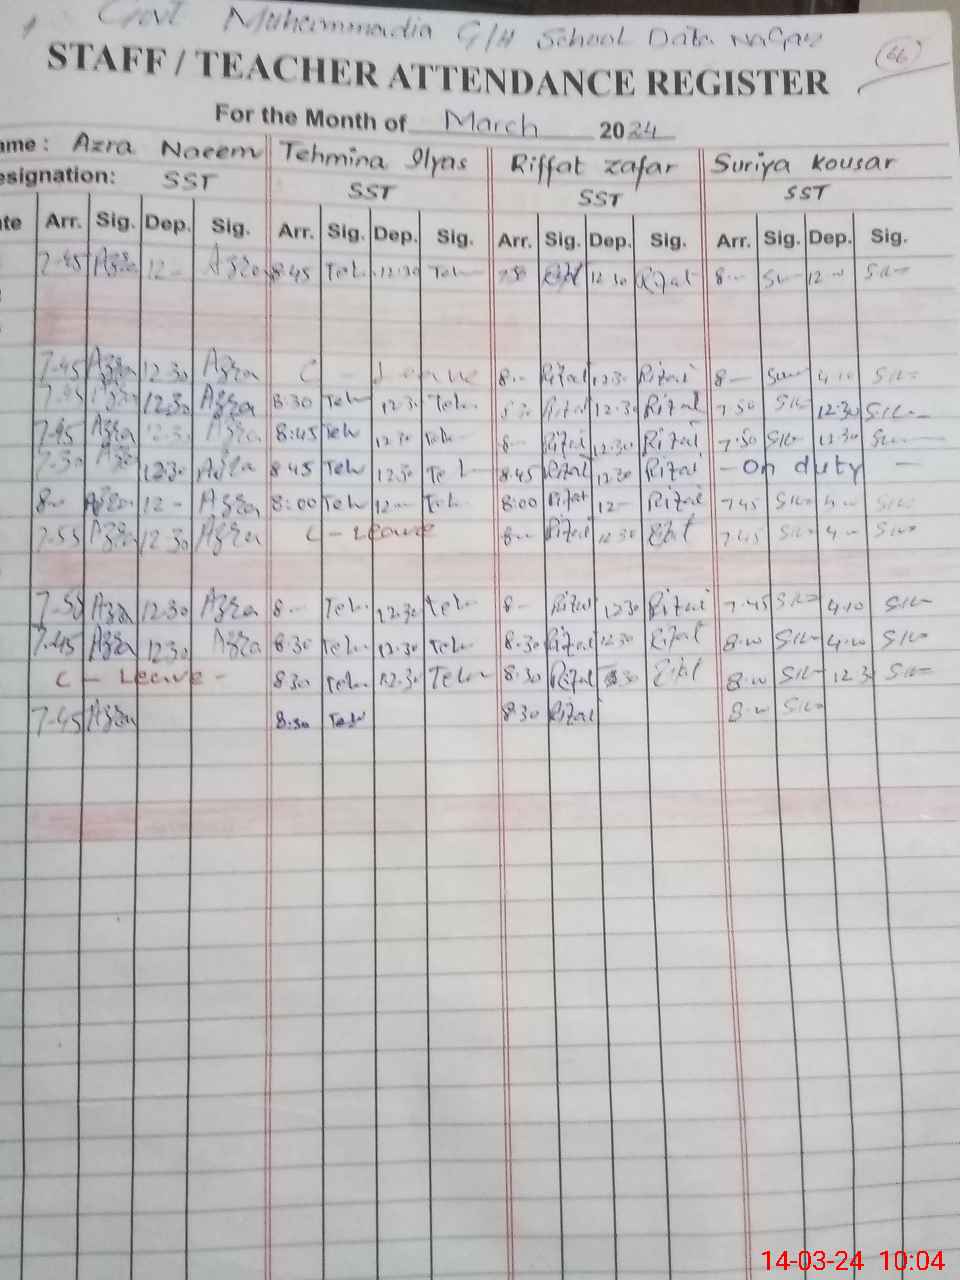 Govt Muhammadia G/H School Data Nagar
46
STAFF / TEACHER ATTENDANCE REGISTER
For the Month of March 2024
ame : Azra Naeem Tehmina Ilyas Riffat zafar Suriya kousar
esignation: SST SST SST SST
te Arr. Sig. Dep. Sig. Arr. Sig. Dep. Sig. Arr. Sig. Dep. Sig. Arr. Sig. Dep. Sig.
7.45 Azra 12 - Azra 8.45 Teh 12.30 Teh 7.50 Rifat 12.30 Rifat 8 - 12 -
7.45 Azra 12.30 Azra C - Leave 8 - Rifat 12.30 Rifat 8 - 4.10
7.45 Azra 12.30 Azra 8.30 Teh 12.30 Teh 8.30 Rifat 12.30 Rifat 7.50 12.30
7.45 Azra 12.30 Azra 8:45 Teh 12.30 Teh 8 - Rifat 12.30 Rifat 7.50 12.30
7.30 Azra 12.30 Azra 8.45 Teh 12.30 Teh 8.45 Rifat 12.30 Rifat - On duty -
8 - Azra 12 - Azra 8:00 Teh 12 - Teh 8:00 Rifat 12 - Rifat 7.45 4 -
7.55 Azra 12.30 Azra C - Leave 8 - Rifat 12.30 Rifat 7.45 4 -
7.50 Azra 12.30 Azra 8 - Teh 12.30 Teh 8 - Rifat 12.30 Rifat 7.45 4.10
7.45 Azra 12.30 Azra 8.30 Teh 12.30 Teh 8.30 Rifat 12.30 Rifat 8.00 4.00
C - Leave - 8.30 Teh 12.30 Teh 8.30 Rifat Rifat 8.00 12.3
7.45 Azra 8.30 Teh 8.30 Rifat 8.00
14-03-24 10:04